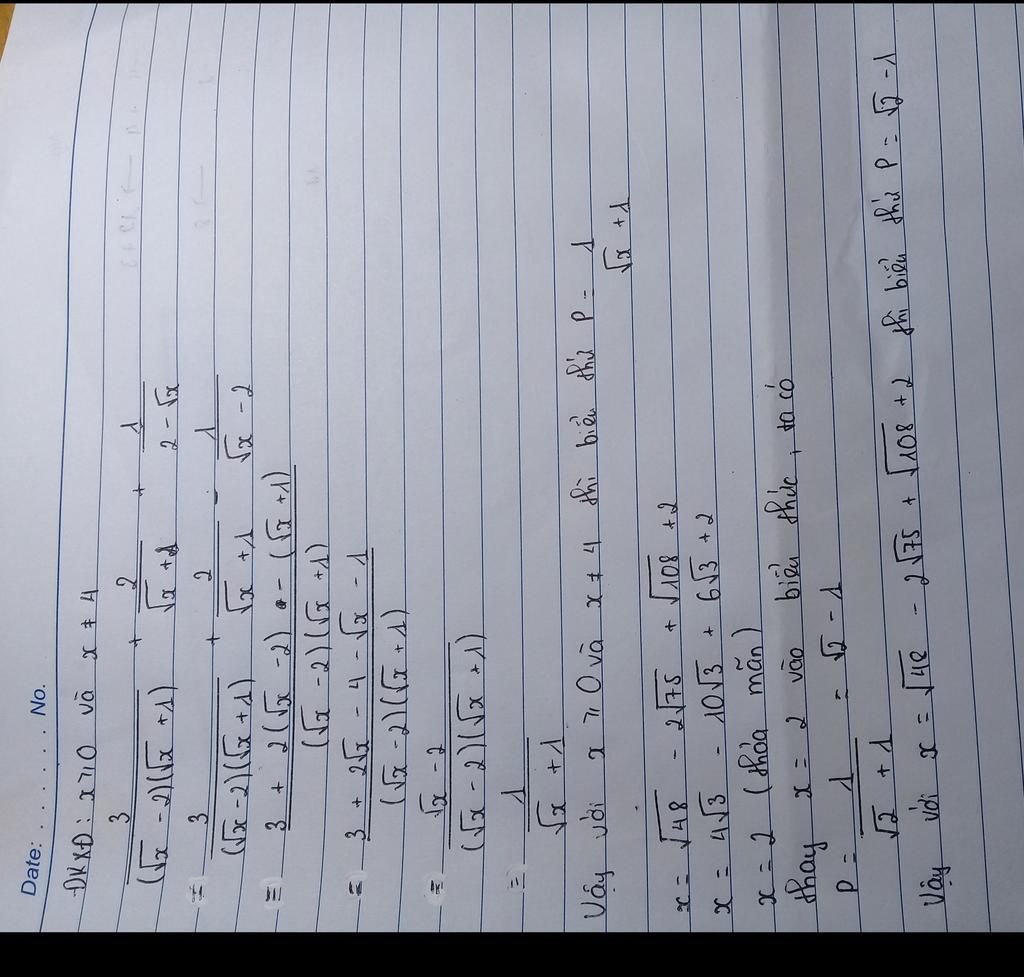 Date: . . . . . . . No.
ĐKXĐ: x ⩾ 0 và x ≠ 4
3/((√x - 2)(√x + 1)) + 2/(√x + 1) + 1/(2 - √x)
= 3/((√x - 2)(√x + 1)) + 2/(√x + 1) - 1/(√x - 2)
= (3 + 2(√x - 2) - (√x + 1))/((√x - 2)(√x + 1))
= (3 + 2√x - 4 - √x - 1)/((√x - 2)(√x + 1))
= (√x - 2)/((√x - 2)(√x + 1))
= 1/(√x + 1)
Vậy với x ⩾ 0 và x ≠ 4 thì biểu thứ P = 1/(√x + 1)
x = √48 - 2√75 + √108 + 2
x = 4√3 - 10√3 + 6√3 + 2
x = 2 (thỏa mãn)
thay x = 2 vào biểu thức, ta có
P = 1/(√2 + 1) = √2 - 1
Vậy với x = √48 - 2√75 + √108 + 2 thì biểu thứ P = √2 - 1